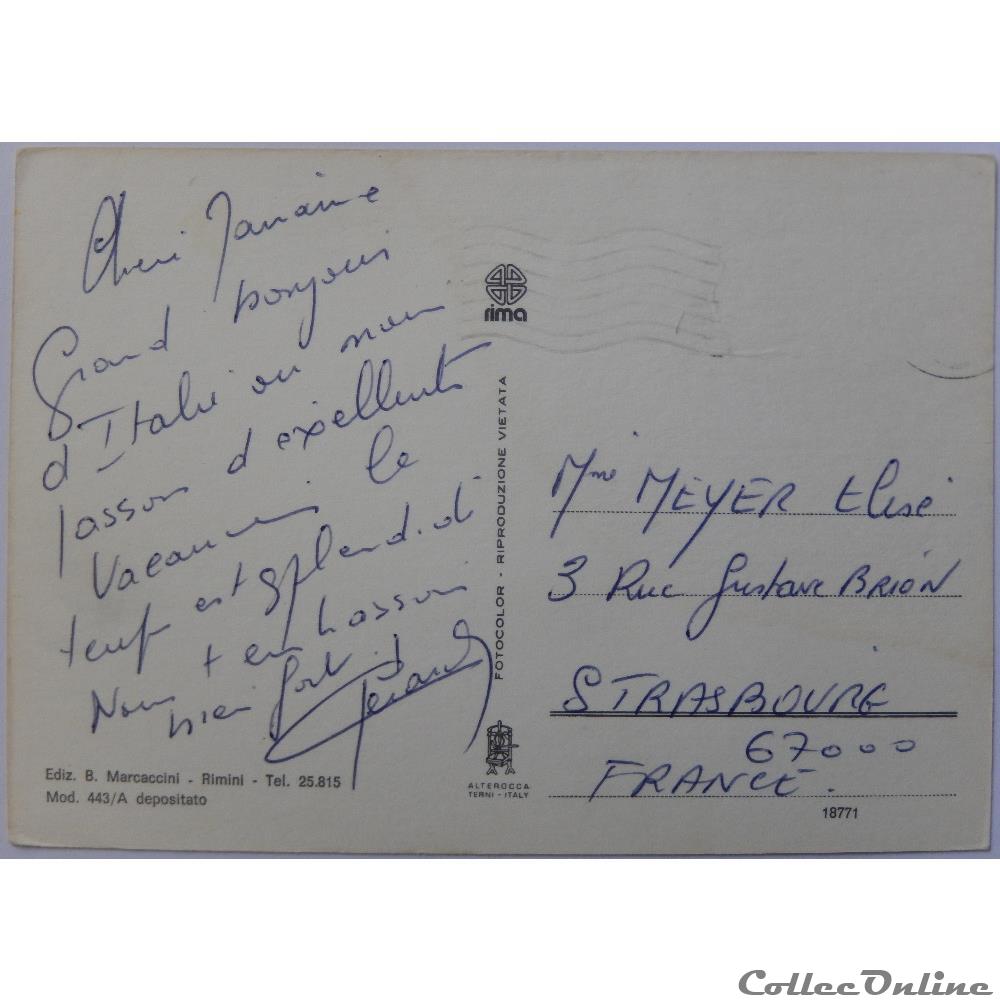 Cheri
Grand bonjour
d'Italie ou nous
passon d'exellente
Vacances le
temp est splendide
Nous t'embrasson
bien fort
Gérard
Ediz. B. Marcaccini - Rimini - Tel. 25.815
Mod. 443/A depositato
rima
FOTOCOLOR - RIPRODUZIONE VIETATA
ALTEROCCA
TERNI - ITALY
Mme MEYER Elisé
3 Rue Gustave BRION
STRASBOURG
67000
FRANCE.
18771
CollecOnline